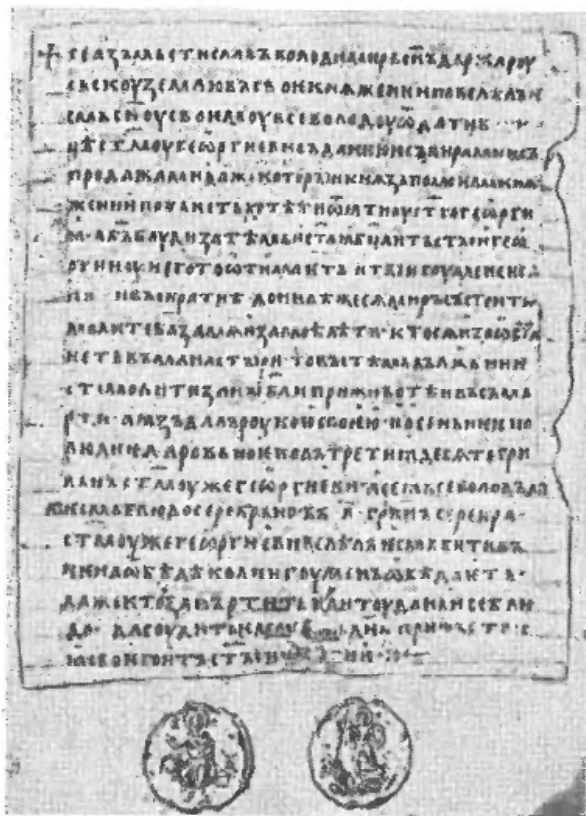 + се азъ мьстиславъ володимирь сн҃ъ дьржа роу
сьскоу землю въ своѥ кнѧжениѥ повелѣлъ ѥ
смь сн҃оу своѥмоу всеволодоу ѿдати боуи
цѣ ст҃моу геѡргиеви съ данию и съ вирами и съ
продажами даже которыи кнѧзь по моѥмь кнѧ
жении почьнеть хотѣти ѿѧти оу ст҃го геѡрги
ꙗ · а бъ҃ боуди за тѣмь и ст҃аꙗ бц҃а и тъ ст҃ыи геѡ
ргии оу него то ѿимаѥть и ты игоумене исаи
ѥ и вы братиѣ донелѣ же сѧ миръ състоить
молите ба҃ за мѧ и за моѣ дѣти кто сѧ изоѡста
неть въ манастыри то вы тѣмь дължьни ѥ
сте молити за ны ба҃ и при животѣ и въ съмь
рти · а ꙗзъ далъ роукою своѥю и осеньнеѥ по
людиѥ даровьноѥ полътретиꙗдесѧте гри
вьнъ ст҃моу же геѡргиеви а се ꙗ всеволодъ да
лъ ѥсмь блюдо серебрьно въ · л҃ · грв҃нъ серебра ·
ст҃моу же геѡргиеви велѣлъ ѥсмь бити въ
нѥ на ѡбѣдѣ коли игоуменъ ѡбѣдаѥть ·
даже кто запъртить или тоу дань и се блю
до · да соудить ѥмоу бъ҃ въ днь҃ пришьстви
ꙗ своѥго и тъ ст҃ыи геѡргии